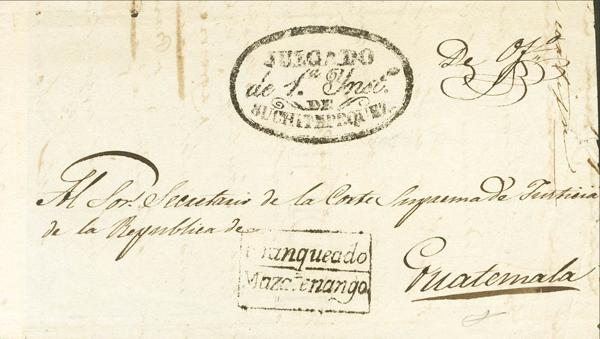 JUZGADO
de 1.ª Ynsª.
DE
SUCHITEPEQUEZ.
De Ofº
Al Sor. Secretario de la Corte Suprema de Justicia
de la Republica de
Franqueado
Mazatenango
Guatemala